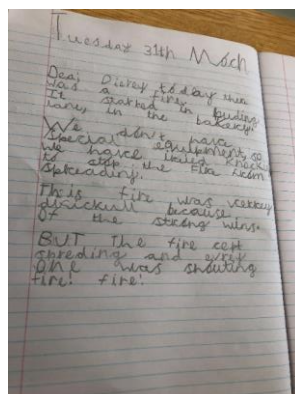 Tuesday 31th Mach
Dear Diarey today there
was a fire.
It started in puding
lane, in the bakery.
We don't have
special equipment, so
we have tried
to stop the fire from
spreading.
This fire was
because
of the strong wins.
BUT the fire cept
spreding and evry
one was shouting
fire! fire!